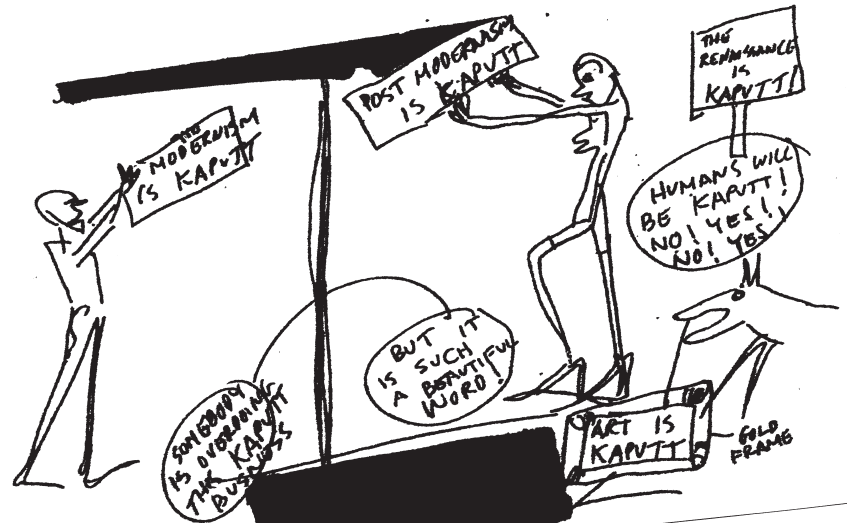 MODERNISM
IS KAPUTT
POST MODERNISM
IS KAPUTT
THE
RENAISSANCE
IS
KAPUTT!
HUMANS WILL
BE KAPUTT!
NO! YES!
NO! YES!
BUT IT
IS SUCH
A BEAUTIFUL
WORD!
SOMEBODY
IS OVERDOING
THE KAPUTT
BUSINESS
ART IS
KAPUTT
GOLD
FRAME